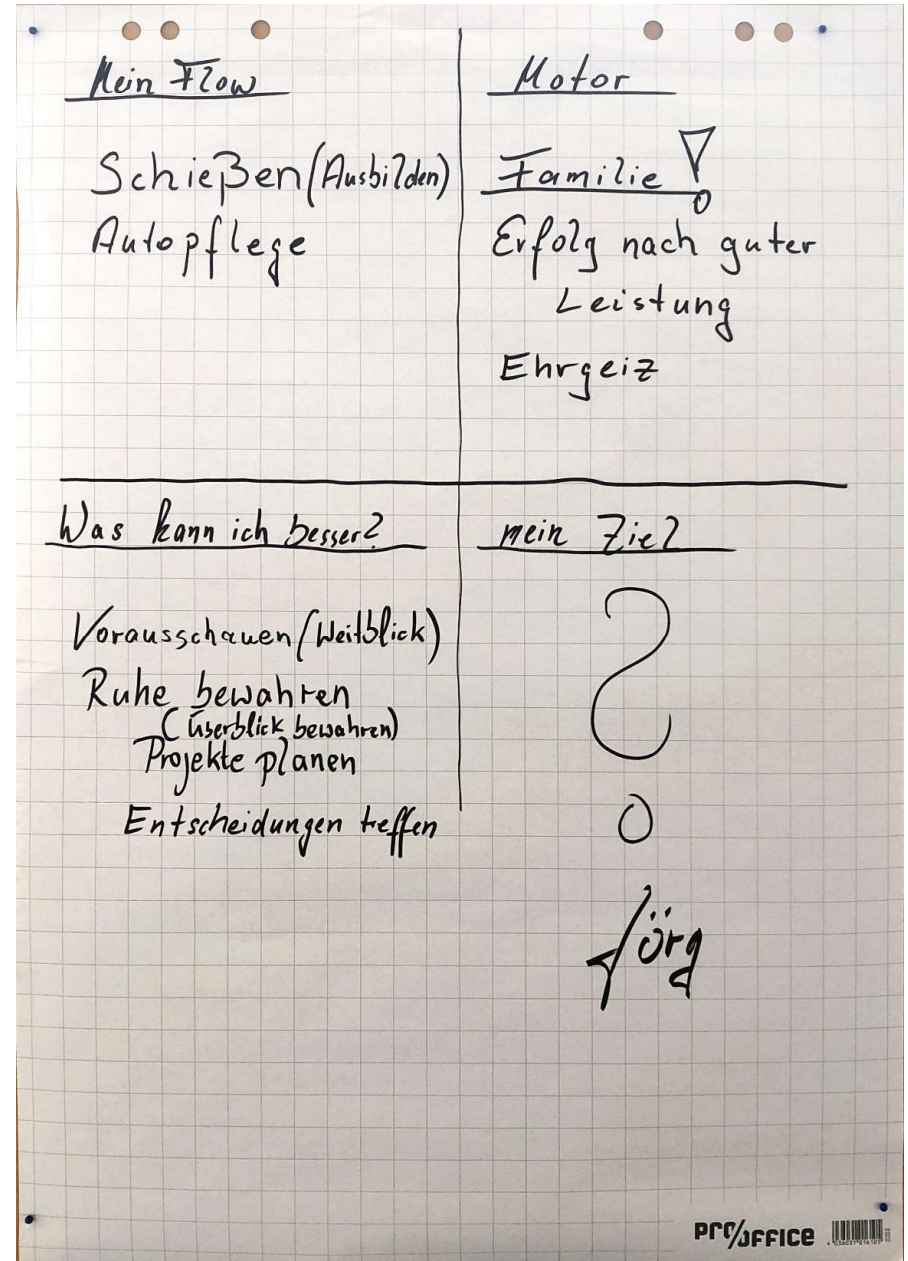 Mein Flow
Schießen (Ausbilden)
Autopflege
Motor
Familie !
Erfolg nach guter
Leistung
Ehrgeiz
Was kann ich besser?
Vorausschauen (Weitblick)
Ruhe bewahren
(Überblick bewahren)
Projekte planen
Entscheidungen treffen
mein Ziel
?
Jörg
Pro/office